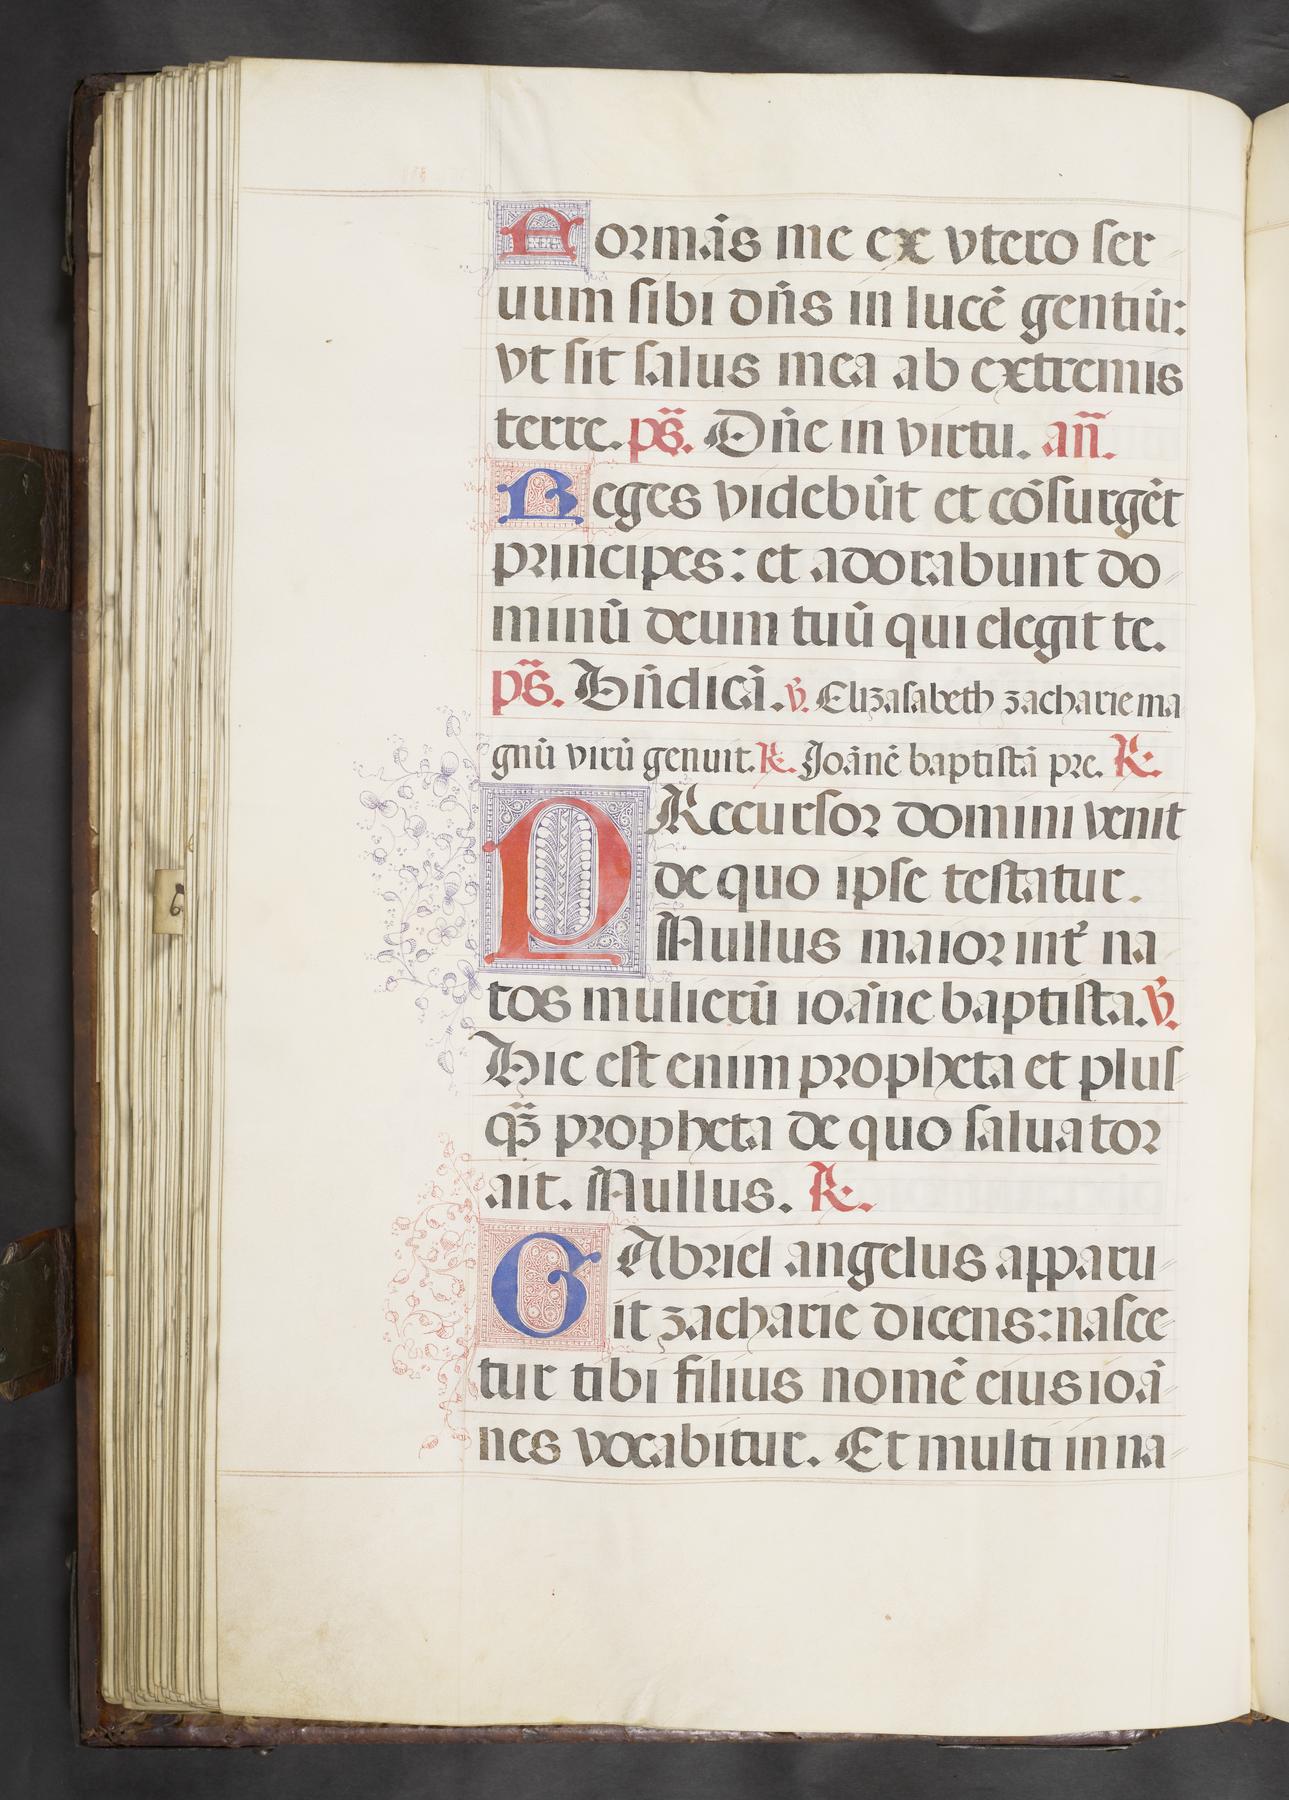 Formãs me ex vtero ser
uum sibi dñs in lucē gentiū:
vt sit salus mea ab extremis
terre. ps̃. Dñe in virtu. añ.
Reges videbūt et cōsurgēt
principes: et adorabunt do
minū deum tuū qui elegit te.
ps̃. Bñdicā. ℣. Elizasabeth zacharie ma
gnū virū genuit. ℟. Joānē baptistā pre. ℟.
PRecursor domini venit
de quo ipse testatur.
Nullus maior int̉ na
tos mulierū ioāne baptista. ℣.
Hic est enim propheta et plus
qȝ̃ propheta de quo saluator
ait. Nullus. ℟.
GAbriel angelus apparu
it zacharie dicens: nasce
tur tibi filius nomē eius ioā
nes vocabitur. Et multi in na
6